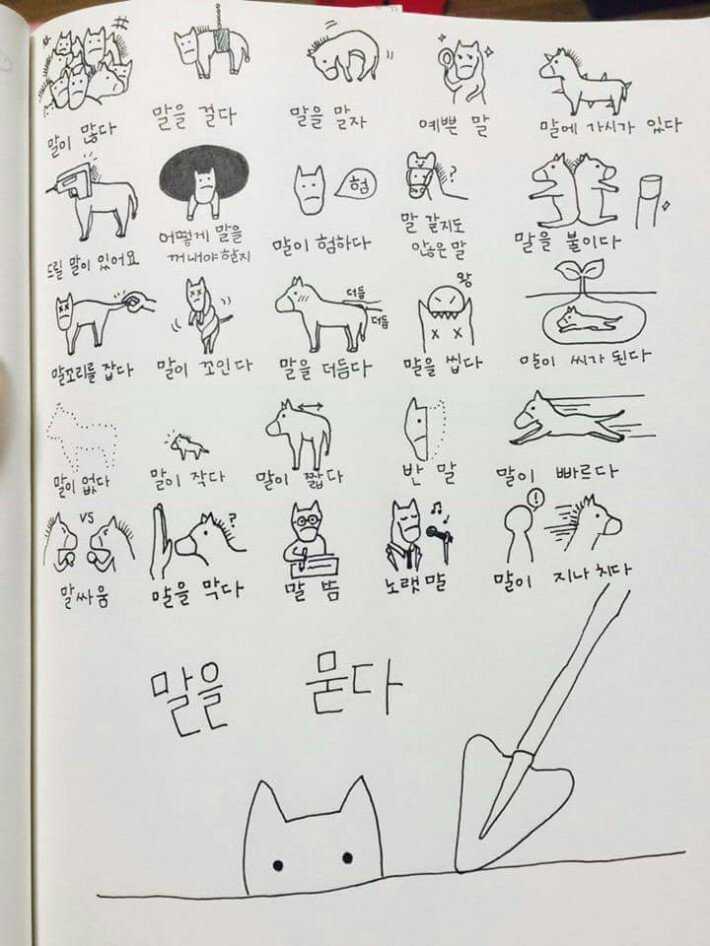 말이 많다
말을 걸다
말을 말자
예쁜 말
말에 가시가 있다
드릴 말이 있어요
어떻게 말을
꺼내야 할지
험
말이 험하다
?
말 같지도
않은 말
말을 붙이다
말꼬리를 잡다
말이 꼬인다
더듬
더듬
말을 더듬다
왕
말을 씹다
말이 씨가 된다
말이 없다
말이 작다
말이 짧다
반 말
말이 빠르다
VS
말싸움
?
말을 막다
말 뽐
노랫말
!
말이 지나치다
말을 묻다